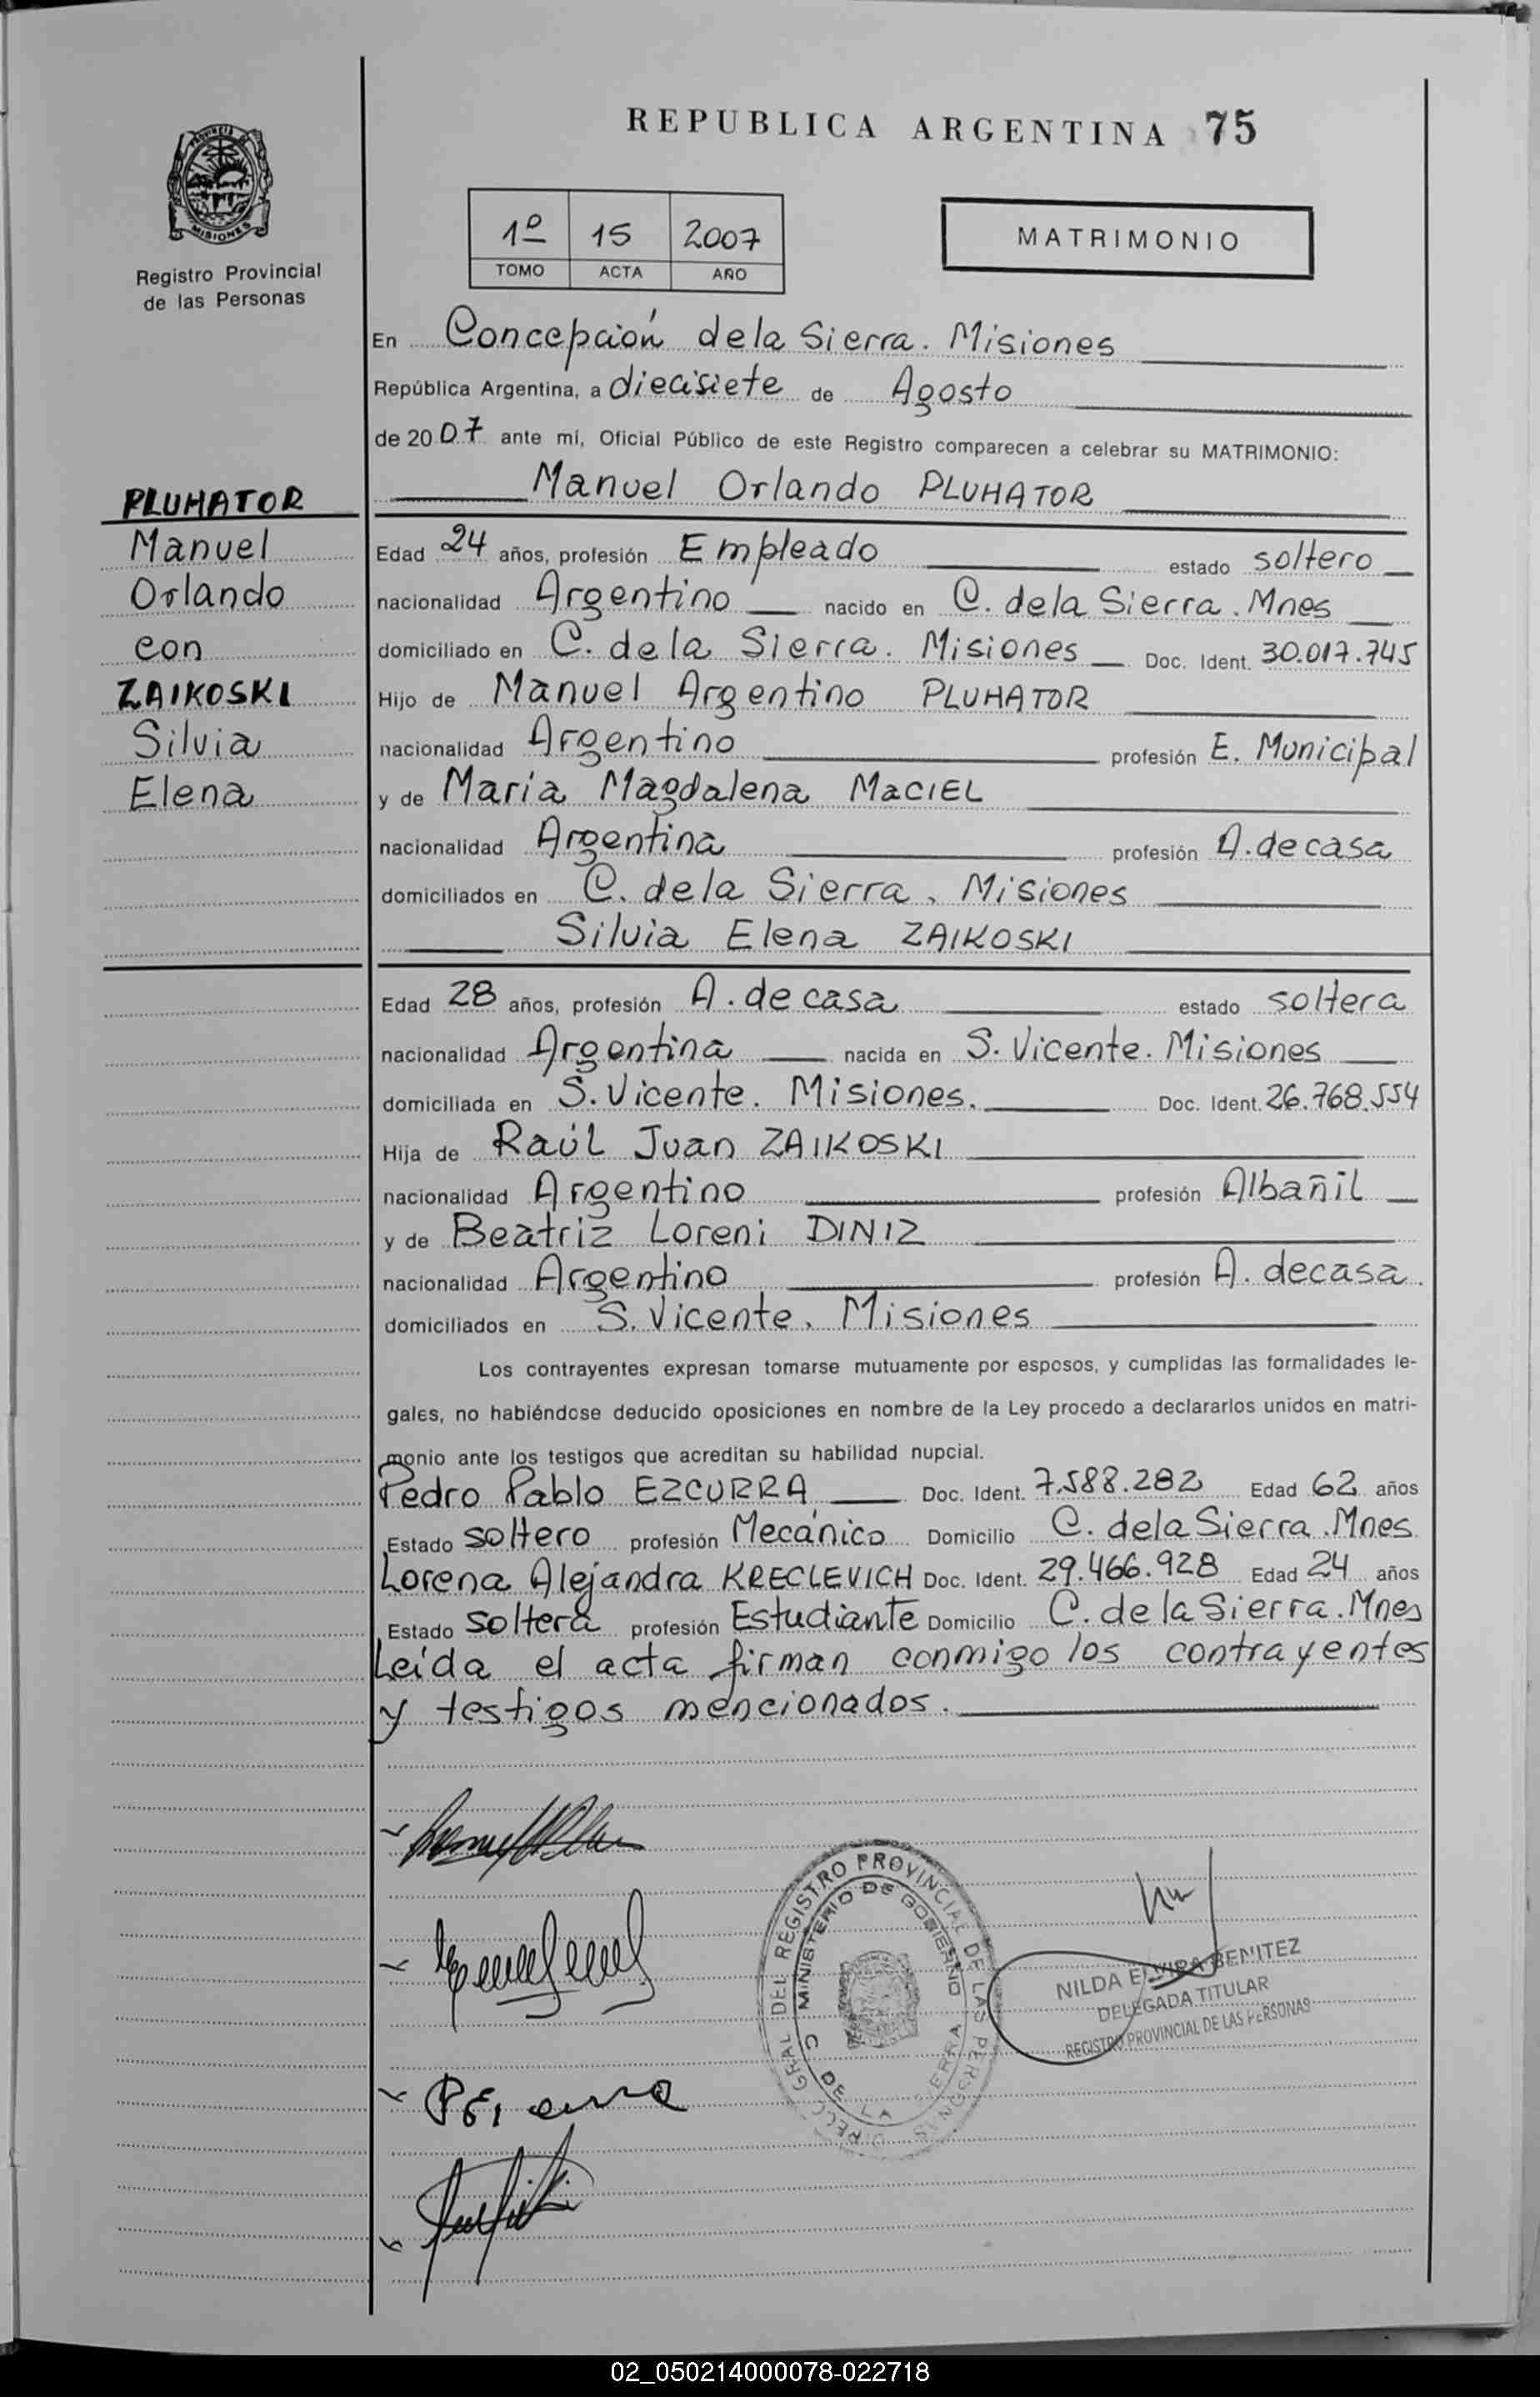 REPUBLICA ARGENTINA 75
MISIONES
Registro Provincial
de las Personas
1º 15 2007
TOMO ACTA AÑO
MATRIMONIO
En Concepción dela Sierra. Misiones
República Argentina, a diecisiete de Agosto
de 2007 ante mí, Oficial Público de este Registro comparecen a celebrar su MATRIMONIO:
Manuel Orlando PLUHATOR
PLUHATOR
Manuel
Orlando
con
ZAIKOSKI
Silvia
Elena
Edad 24 años, profesión Empleado estado soltero
nacionalidad Argentino nacido en C. dela Sierra. Mnes
domiciliado en C. de la Sierra. Misiones Doc. Ident. 30.017.745
Hijo de Manuel Argentino PLUHATOR
nacionalidad Argentino profesión E. Municipal
y de María Magdalena MACIEL
nacionalidad Argentina profesión A. de casa
domiciliados en C. dela Sierra, Misiones
Silvia Elena ZAIKOSKI
Edad 28 años, profesión A. de casa estado soltera
nacionalidad Argentina nacida en S. Vicente. Misiones
domiciliada en S. Vicente. Misiones. Doc. Ident. 26.768.554
Hija de Raúl Juan ZAIKOSKI
nacionalidad Argentino profesión Albañil
y de Beatriz Loreni DINIZ
nacionalidad Argentino profesión A. decasa
domiciliados en S. Vicente. Misiones
Los contrayentes expresan tomarse mutuamente por esposos, y cumplidas las formalidades le-
gales, no habiéndose deducido oposiciones en nombre de la Ley procedo a declararlos unidos en matri-
monio ante los testigos que acreditan su habilidad nupcial.
Pedro Pablo EZCURRA Doc. Ident. 7.588.282 Edad 62 años
Estado soltero profesión Mecánico Domicilio C. dela Sierra. Mnes
Lorena Alejandra KRECLEVICH Doc. Ident. 29.466.928 Edad 24 años
Estado soltera profesión Estudiante Domicilio C. de la Sierra. Mnes
Leída el acta firman conmigo los contrayentes
y testigos mencionados.
DEL REGISTRO PROVINCIAL DE LAS PERSONAS
MINISTERIO DE GOBIERNO
C DE LA SIERRA
NILDA ELVIRA BENITEZ
DELEGADA TITULAR
REGISTRO PROVINCIAL DE LAS PERSONAS
02_050214000078-022718